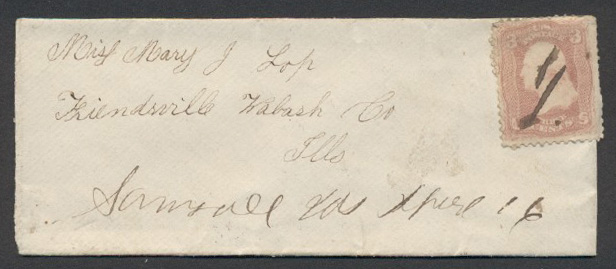 Miss Mary J Lop
Friendsville Wabash Co
Ills
April 16
3 U.S. POSTAGE 3
CENTS